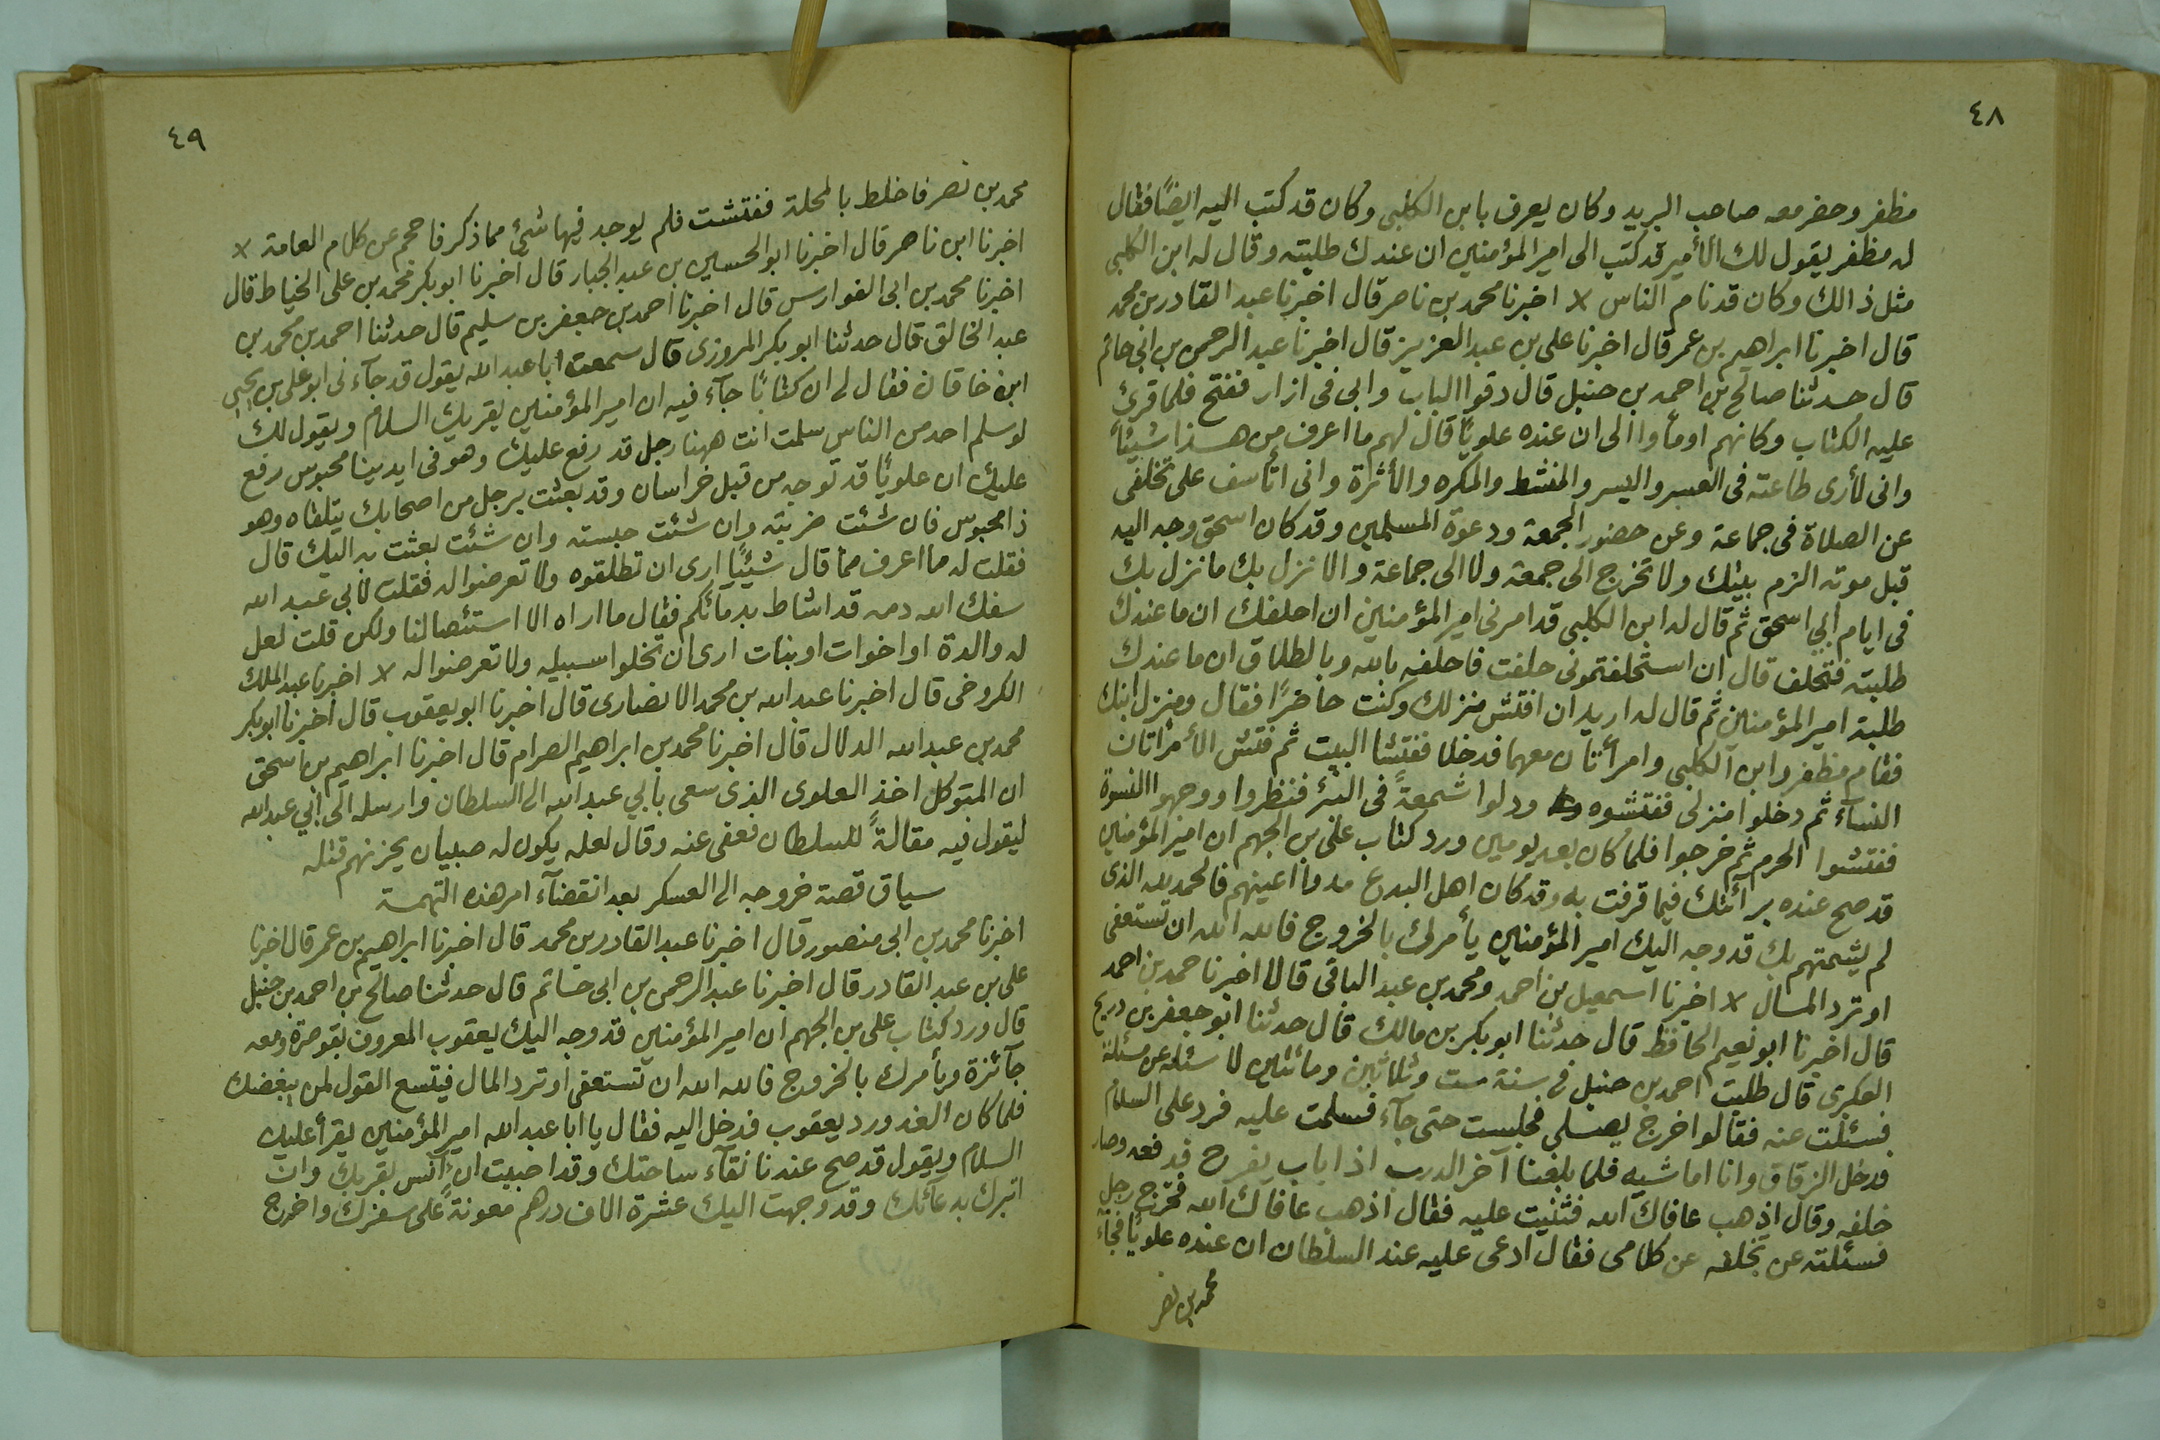 ٤٨
مظفر وحضر معه صاحب البريد وكان يعرف بابن الكلبي وكان قد كتب اليه ايضًا فقال
له مظفر يقول لك الأمير قد كتب الى امير المؤمنين ان عندك طلبته وقال له ابن الكلبي
مثل ذالك وكان قد نام الناس × اخبرنا محمد بن ناصر قال اخبرنا عبد القادر بن محمد
قال اخبرنا ابراهيم بن عمر قال اخبرنا على بن عبد العزيز قال اخبرنا عبد الرحمن بن ابى حاتم
قال حدثنا صالح بن احمد بن حنبل قال دقوا الباب وابى فى ازار ففتح فلما قرئ
عليه الكتاب وكانهم اومأوا الى ان عنده علويًا قال لهم ما اعرف من هذا شيئًا
وانى لأرى طاعته فى العسر واليسر والمنشط والمكره والأثرة وانى اتأسف على تخلفى
عن الصلاة فى جماعة وعن حضور الجمعة ودعوة المسلمين وقد كان اسحق وجه اليه
قبل موته الزم بيتك ولا تخرج الى جمعة ولا الى جماعة والا نزل بك ما نزل بك
فى ايام ابي اسحق ثم قال له ابن الكلبي قد امرنى امير المؤمنين ان احلفك ان ما عندك
طلبته فتحلف قال ان استحلفتمونى حلفت فاحلفه بالله وبالطلاق ان ما عندك
طلبة امير المؤمنين ثم قال له اريد ان افتش منزلك وكنت حاضرًا فقال ومنزل ابنك
فقام مظفر وابن الكلبي وامرأتان معهما فدخلا ففتشا البيت ثم فتش الأمرأتان
النسآء ثم دخلوا منزلى ففتشوه ودلوا شمعةً فى البئر فنظروا ووجهوا النسوة
ففتشوا الحرم ثم خرجوا فلما كان بعد يومين ورد كتاب على بن الجهم ان امير المؤمنين
قد صح عنده برآئتك فيما قرفت به وقد كان اهل البدع مدوا اعينهم فالحمد لله الذى
لم يشمتهم بك قد وجه اليك امير المؤمنين يأمرك بالخروج فالله الله ان تستعفى
او ترد المال × اخبرنا اسمعيل بن احمد ومحمد بن عبد الباقى قالا اخبرنا حمد بن احمد
قال اخبرنا ابو نعيم الحافظ قال حدثنا ابو بكر بن مالك قال حدثنا ابو جعفر بن دريج
العكبرى قال طلبت احمد بن حنبل فى سنة ست وثلاثين ومائتين لا سئله عن مسئلة
فسئلت عنه فقالوا خرج يصلى فجلست حتى جآء فسلمت عليه فرد على السلام
فدخل الزقاق وانا اماشيه فلما بلغنا آخر الدرب اذا باب يفرج فدفعه وصار
خلفه وقال اذهب عافاك الله فثنيت عليه فقال اذهب عافاك الله فخرج رجل
فسئلته عن تخلفه عن كلامى فقال ادعى عليه عند السلطان ان عنده علويًا فجآء
محمد بن نصر
٤٩
محمد بن نصر فاخلط بالمحلة ففتشت فلم يوجد فيها شئ مما ذكر فاحجم عن كلام العامة ×
اخبرنا ابن ناصر قال اخبرنا ابو الحسين بن عبد الجبار قال اخبرنا ابو بكر محمد بن على الخياط قال
اخبرنا محمد بن ابى الفوارس قال اخبرنا احمد بن جعفر بن سليم قال حدثنا احمد بن محمد بن
عبد الخالق قال حدثنا ابو بكر المروزى قال سمعت ابا عبد الله يقول قد جآءنى ابو على بن يحيى
ابن خاقان فقال لى ان كتابًا جآء فيه ان امير المؤمنين يقريك السلام ويقول لك
لو سلم احد من الناس سلمت انت ههنا رجل قد رفع عليك وهو فى ايدينا محبوس رفع
عليك ان علويًا قد توجه من قبل خراسان وقد بعثت برجل من اصحابك يتلقاه وهو
ذا محبوس فان شئت ضربته وان شئت حبسته وان شئت بعثت به اليك قال
فقلت له ما اعرف مما قال شيئًا ارى ان تطلقوه ولا تعرضوا له فقلت لأبي عبد الله
سفك الله دمه قد اشاط بدمآئكم فقال ما اراه الا استئصالنا ولكن قلت لعل
له والدة او اخوات او بنات ارى ان تخلوا سبيله ولا تعرضوا له × اخبرنا عبد الملك
الكروخى قال اخبرنا عبد الله بن محمد الانصارى قال اخبرنا ابو يعقوب قال اخبرنا ابو بكر
محمد بن عبد الله الدلال قال اخبرنا محمد بن ابراهيم الصرام قال اخبرنا ابراهيم بن اسحق
ان المتوكل اخذ العلوى الذى سعى بأبي عبد الله الى السلطان وارسله الى ابي عبد الله
ليقول فيه مقالةً للسلطان فعفى عنه وقال لعله يكون له صبيان يحزنهم قتله
سياق قصة خروجه الى العسكر بعد انقضآء امر هذه التهمة
اخبرنا محمد بن ابى منصور قال اخبرنا عبد القادر بن محمد قال اخبرنا ابراهيم بن عمر قال اخبرنا
على بن عبد القادر قال اخبرنا عبد الرحمن بن ابى حاتم قال حدثنا صالح بن احمد بن حنبل
قال ورد كتاب على بن الجهم ان امير المؤمنين قد وجه اليك يعقوب المعروف بقوصرة ومعه
جآئزة ويأمرك بالخروج فالله الله ان تستعفى او ترد المال فيتسع القول لمن يبغضك
فلما كان الغد ورد يعقوب فدخل اليه فقال يا ابا عبد الله امير المؤمنين يقرأ عليك
السلام ويقول قد صح عندنا نقآء ساحتك وقد احببت ان آنس بقربك وان
اتبرك بدعآئك وقد وجهت اليك عشرة الاف درهم معونةً على سفرك واخرج